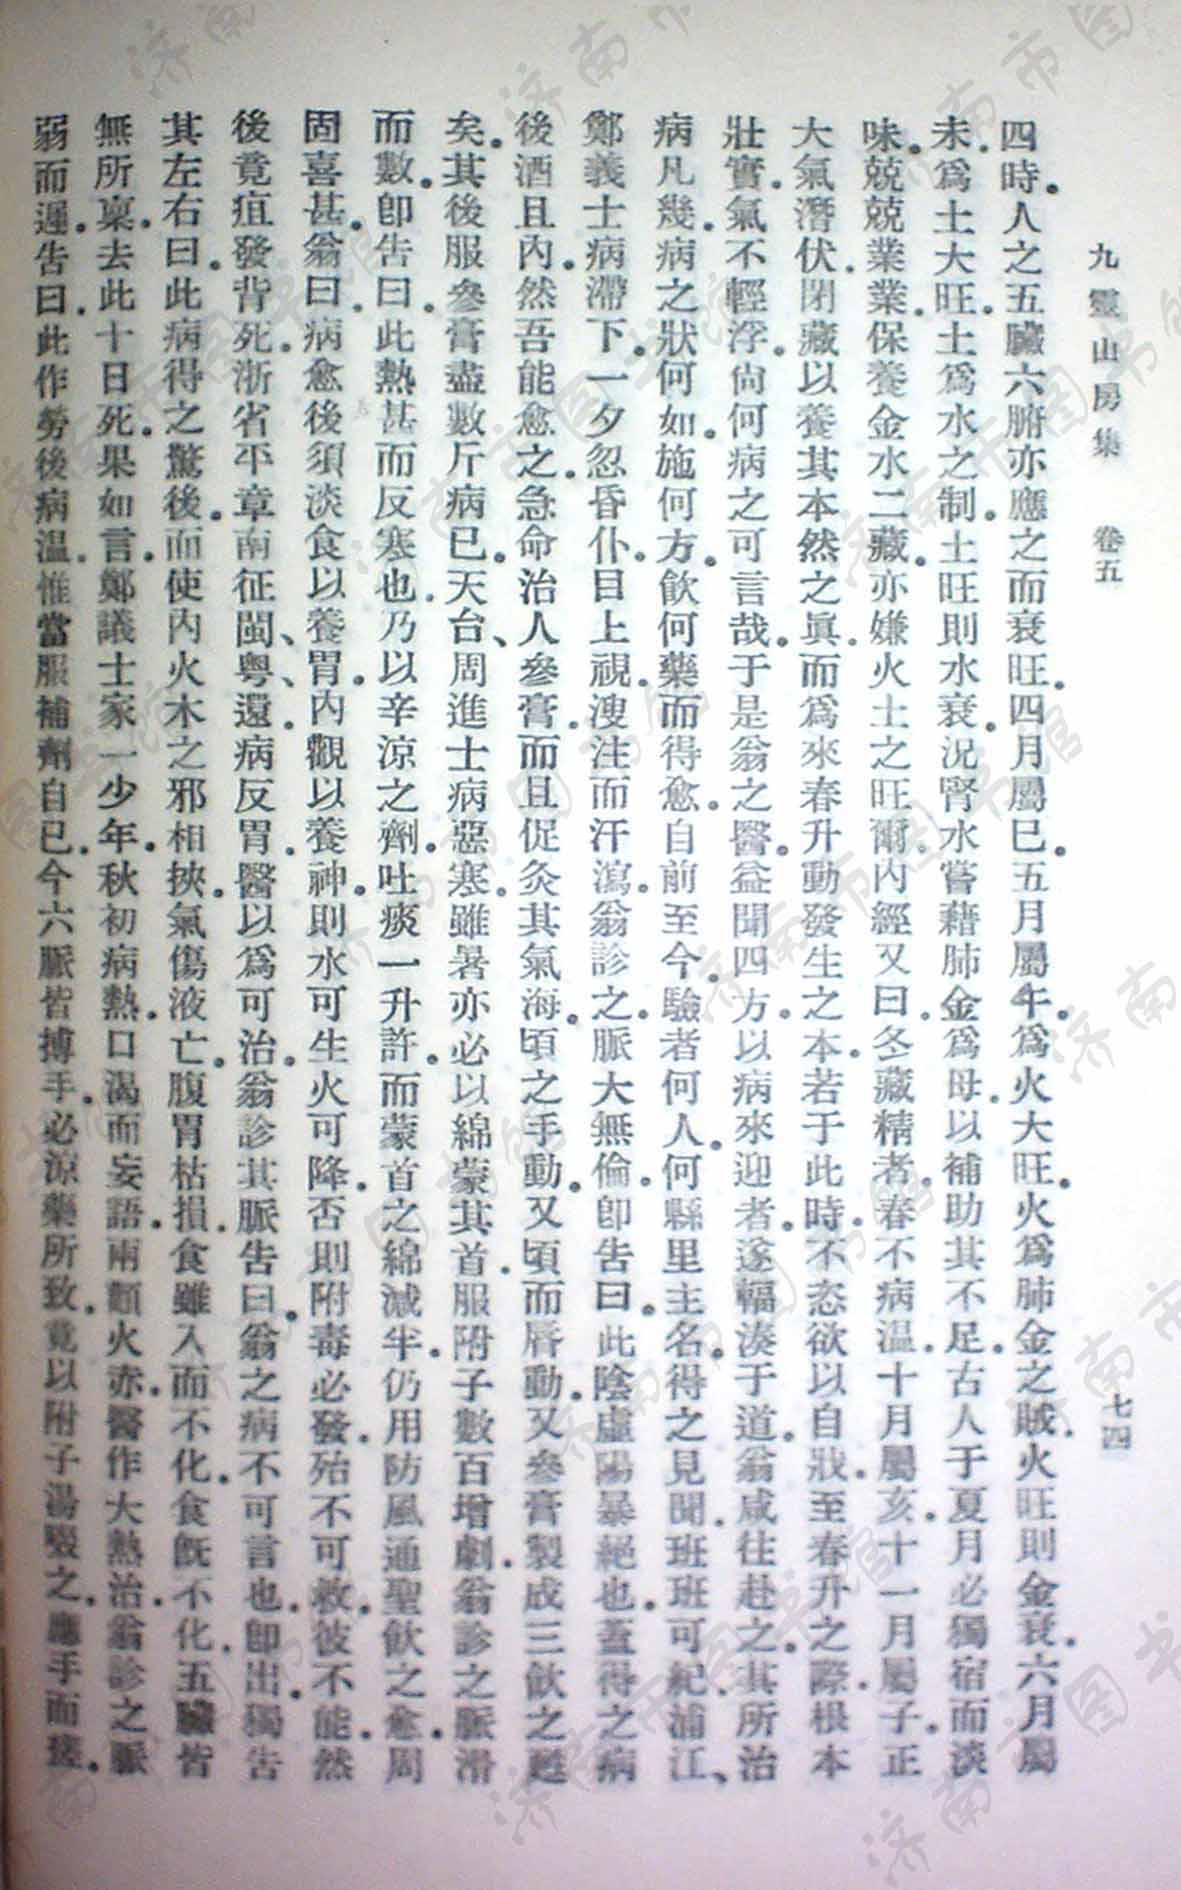 九靈山房集　卷五　七四
四時。人之五臟六腑亦應之而衰旺。四月屬巳。五月屬午。爲火大旺。火爲肺金之賊。火旺則金衰。六月屬
未。爲土大旺。土爲水之制。土旺則水衰。況腎水嘗藉肺金爲母。以補助其不足。古人于夏月必獨宿而淡
味。兢兢業業。保養金水二藏。亦嫌火土之旺爾。內經又曰。冬藏精者。春不病溫。十月屬亥。十一月屬子。正
大氣潛伏。閉藏以養其本然之眞。而爲來春升動發生之本。若于此時。不恣欲以自戕。至春升之際。根本
壯實。氣不輕浮。尙何病之可言哉。于是翁之醫。益聞四方。以病來迎者。遂輻湊于道。翁咸往赴之。其所治
病凡幾。病之狀何如。施何方。飮何藥而得愈。自前至今。驗者何人。何縣里主名。得之見聞。班班可紀。浦江、
鄭義士病滯下。一夕忽昏仆。目上視。溲注而汗瀉。翁診之。脈大無倫。卽告曰。此陰虛陽暴絕也。蓋得之病
後酒且內。然吾能愈之。急命治人參膏。而且促灸其氣海。頃之手動。又頃而唇動。又參膏製成三飮之甦
矣。其後服參膏盡數斤病已。天台、周進士病惡寒。雖暑亦必以綿蒙其首。服附子數百增劇。翁診之。脈滑
而數。卽告曰。此熱甚而反寒也。乃以辛涼之劑。吐痰一升許。而蒙首之綿減半。仍用防風通聖飮之愈。周
固喜甚。翁曰。病愈後須淡食以養胃。內觀以養神。則水可生火可降。否則附毒必發。殆不可救。彼不能然
後竟疽發背死。浙省平章南征閩、粤、還。病反胃。醫以爲可治。翁診其脈告曰。翁之病不可言也。卽出。獨告
其左右曰。此病得之驚後。而使內火木之邪相挾。氣傷液亡。腹胃枯損。食雖入而不化。食旣不化。五臟皆
無所稟。去此十日死。果如言。鄭議士家一少年。秋初病熱。口渴而妄語。兩顴火赤。醫作大熱治。翁診之。脈
弱而遲。告曰。此作勞後病溫。惟當服補劑自已。今六脈皆搏手。必涼藥所致。竟以附子湯啜之。應手而瘥。